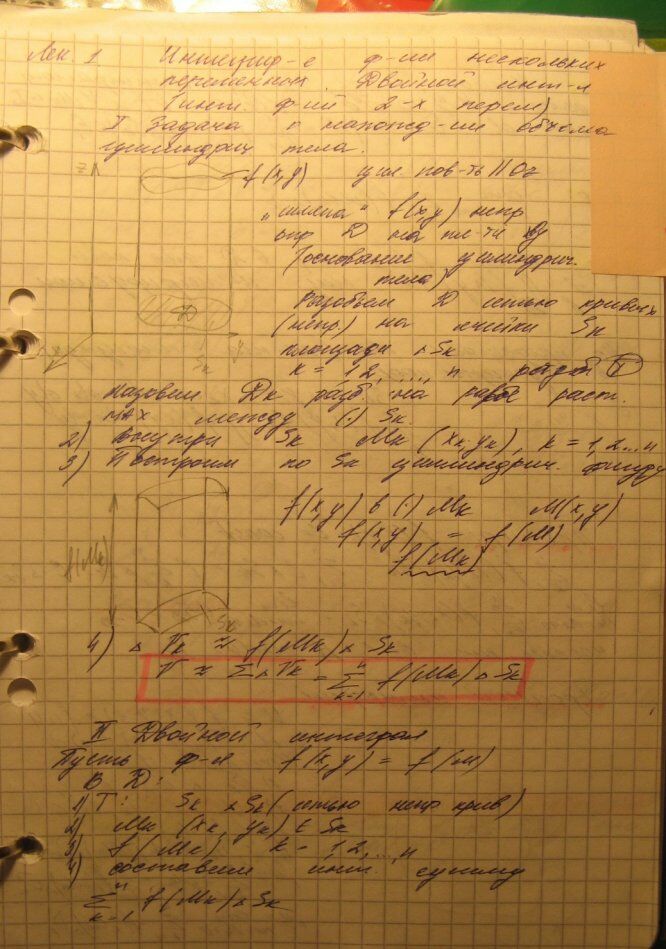 Лек. 1 Интегрир-е ф-ии нескольких
переменных. Двойной инт-л
(инт. ф-ий 2-х перем)
I Задача о нахожд-ии объёма
цилиндрич тела.
z f(x,y) цил. пов-ть || Oz
„шляпа“ f(x,y) непр
опр D на пл-ти xy
(основание цилиндрич.
тела)
Разобьем D сетью кривых
(непр.) на ячейки Sk
D
x y Sk
площади ΔSk
k = 1,2, ..., n
Назовем Dk раст.
max между (·) Sk.
2) Внутри Sk Mk (xk, yk), k = 1,2...n
3) Построим по Sk цилиндрич. фигуру
f(x,y) в (·) Mk M(x,y)
f(x,y) = f(M)
f(Mk)
f(Mk)
Sk
4) ΔVk ≈ f(Mk)ΔSk
V ≈ ΣΔVk = Σ f(Mk)ΔSk
n
k=1
II Двойной интеграл
Пусть ф-я f(x,y) = f(M)
в D:
1) T: Sk ΔSk (сетью непр крив)
2) Mk (xk, yk) ∈ Sk
3) f(Mk) k = 1,2,...,n
4) составим инт. сумму
n
Σ f(Mk)ΔSk
k=1